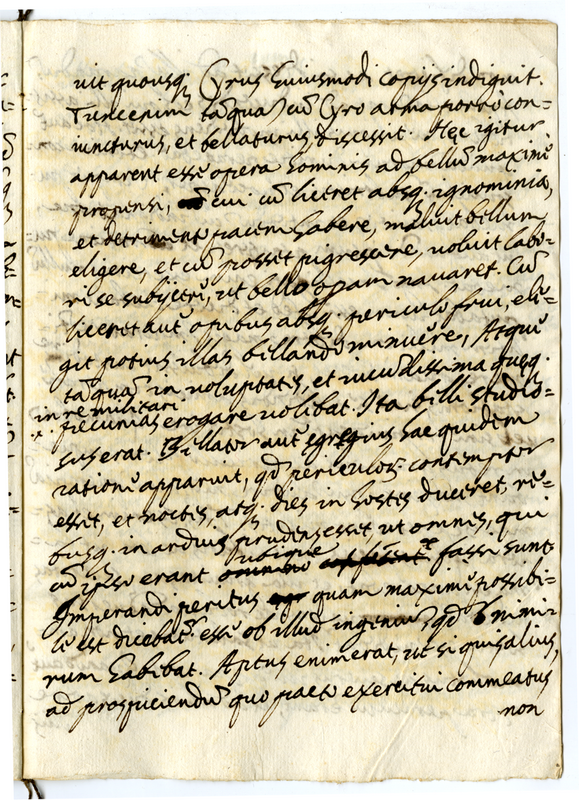 uit quousq; Cyrus huiusmodi copijs indiguit.
Tunc enim tãquã cũ Cyro arma porro con=
iuncturus, et bellaturus discessit. Hęc igitur
apparent esse opera hominis ad bellũ maximè
propensi, cui cũ liceret absq. ignominia,
et detrimento pacem habere, maluit bellum
eligere, et cũ posset pigrescere, uoluit labo=
ri se subijcere, ut bello operam nauaret. Cũ
liceret aut opibus absq. periculo frui, eli=
git potius illas bellando minuere, Atqui
tãquã in uoluptates, et iucũdissima quęq.
in re militari
pecunias erogare uolebat. Ita belli studio=
sus erat. Bellator aut egregius hac quidem
ratione apparuit, qd periculos contemptor
esset, et noctes, atq. dies in hostes duceret, re=
busq. in arduis prudens esset, ut omnes, qui
ubique
cũ ipso erant omnino fassi sunt.
Imperandi peritus quam maximè possibi=
le est dicebat esse ob illud ingeniũ, qd nimi=
rum habebat. Aptus enim erat, ut si quis alius,
ad prospiciendũ quo pacto exercitui commeatus
non